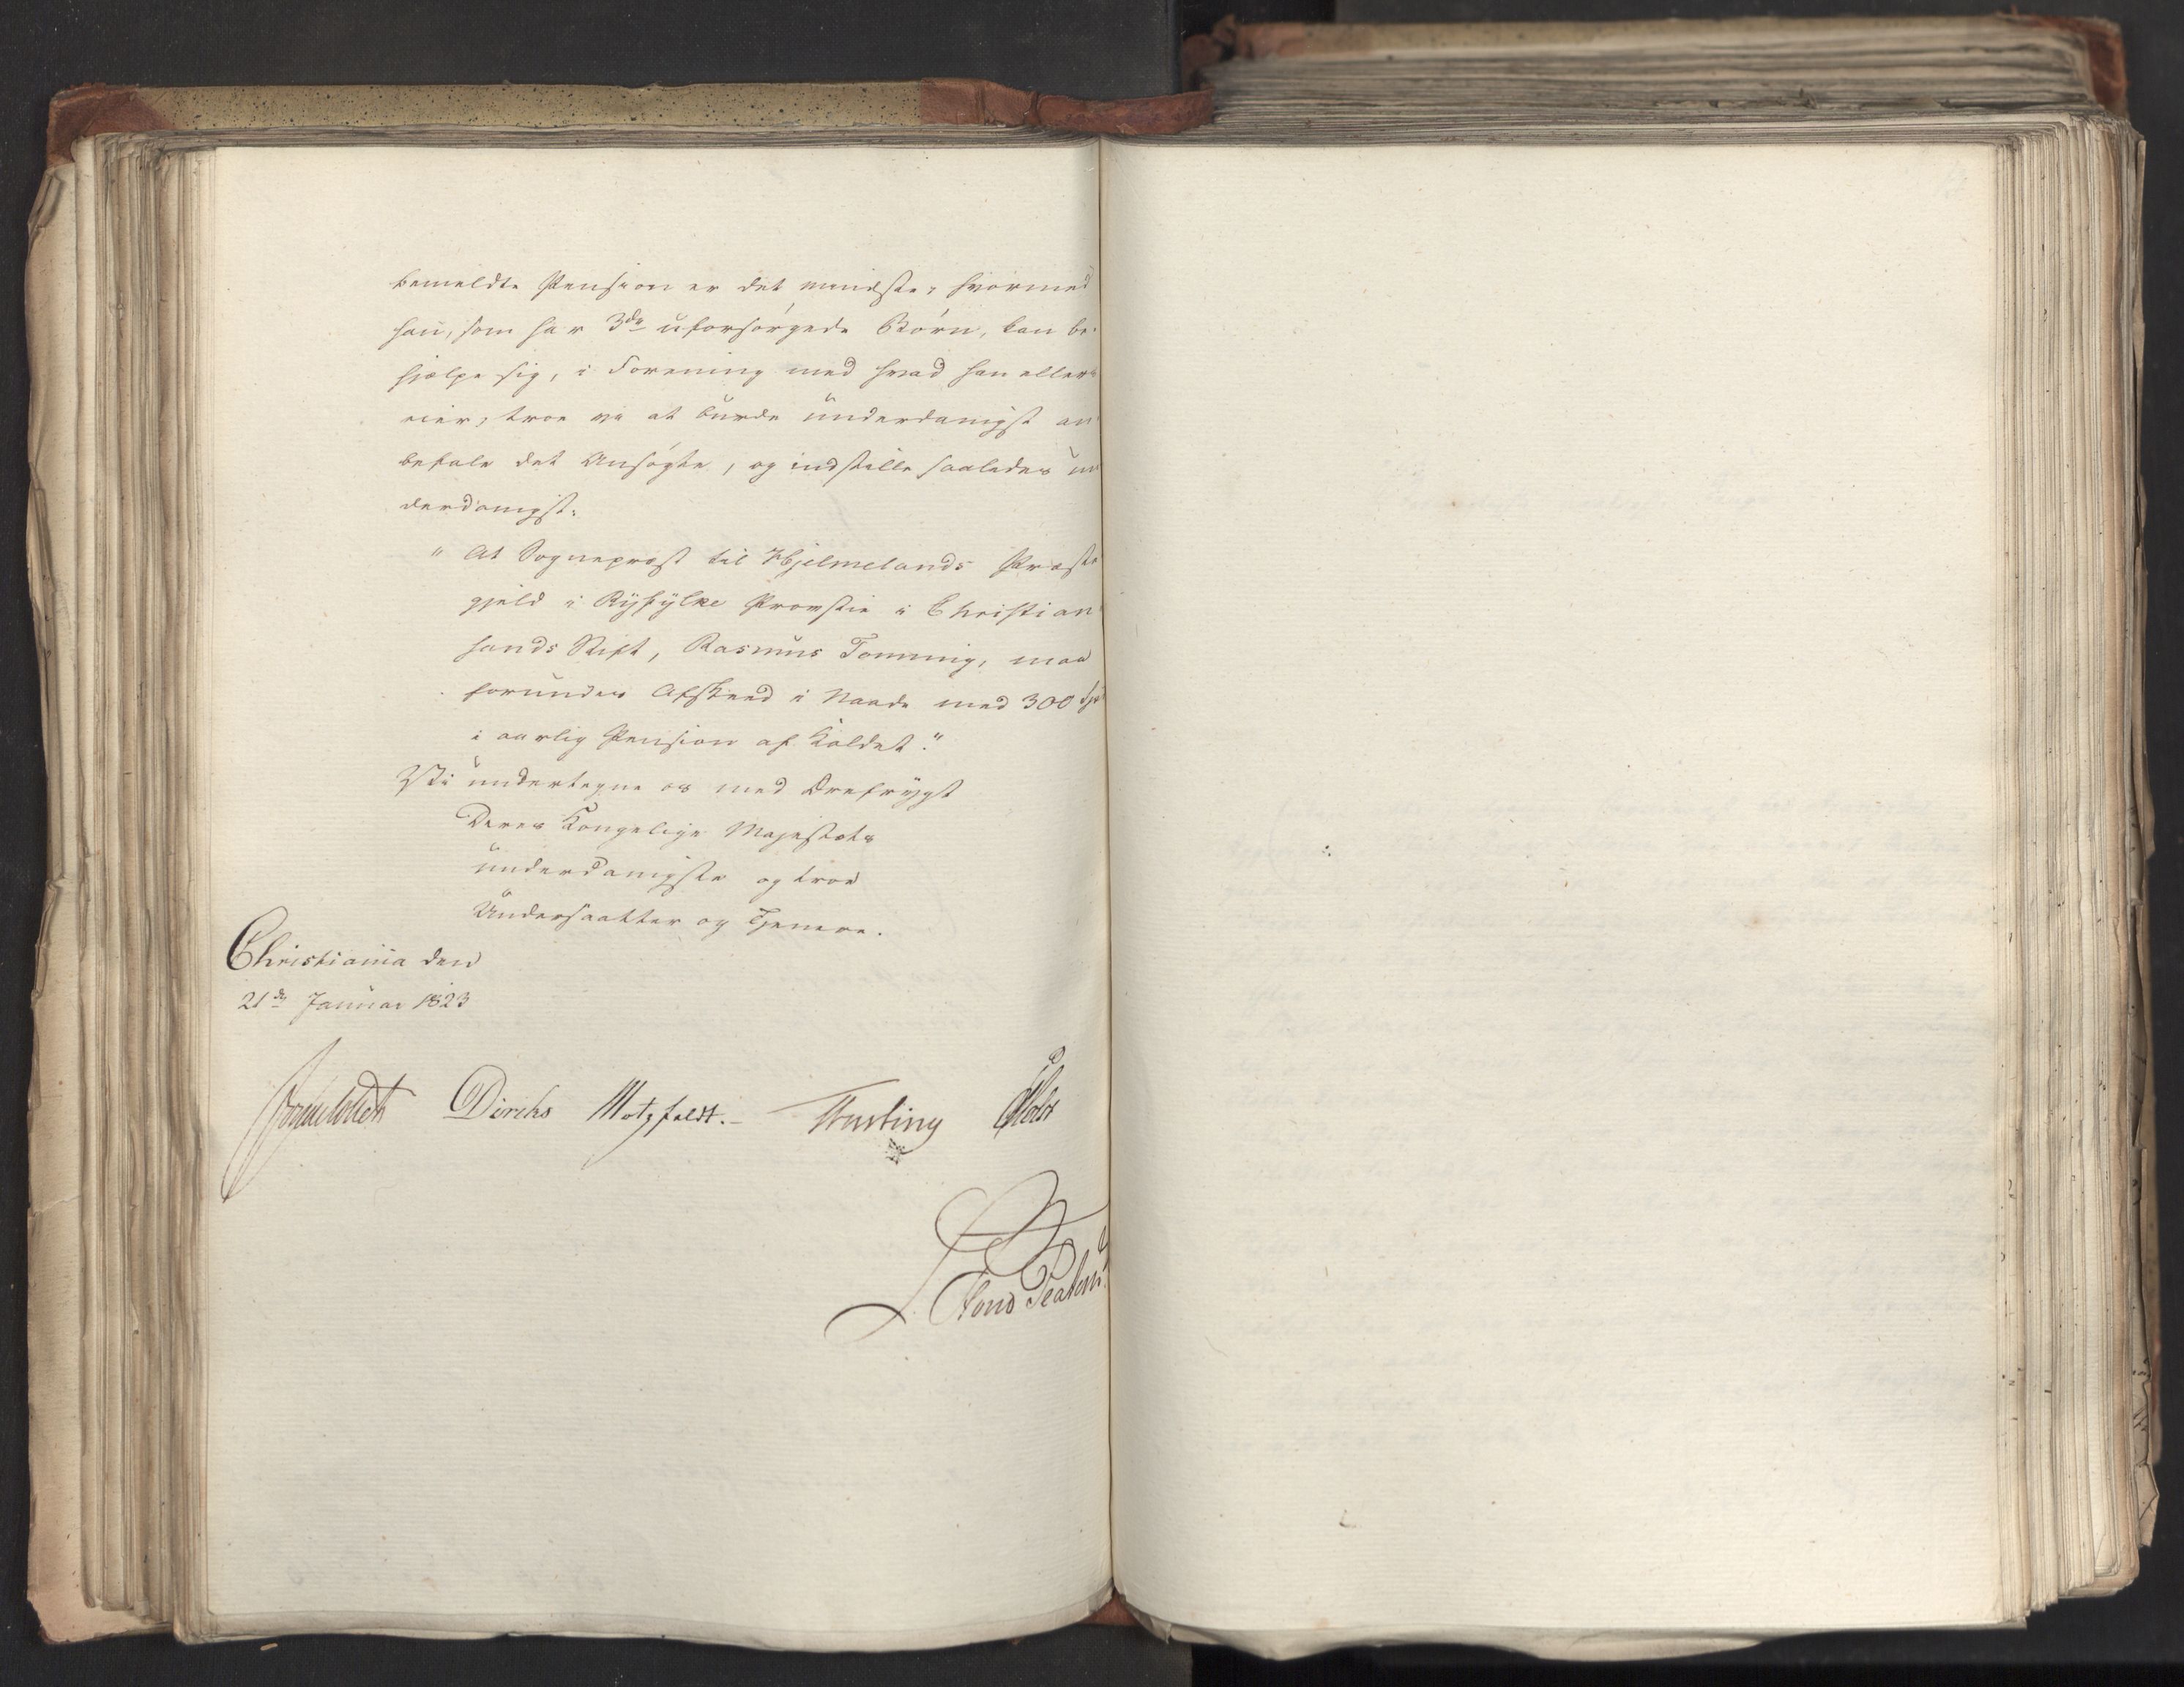 bemeldte Pension er det mindste, hvormed
han, som har 3de uforsørgede Børn, kan be-
hjælpe sig, i Forening med hvad han ellers
eier; troe vi at burde underdanigst an-
befale det Ansøgte, og indstille saaledes un-
derdanigst:
" At Sogneprest til Hjelmelands Præste-
gjeld i Ryfylke Provstie i Christian-
sands Stift, Rasmus Tonning, maa
forundes Afskeed i Naade med 300 Spd
i aarlig Pension af Kaldet."
Vi undertegne os med Ærefrygt
Deres Kongelige Majestæts
underdanigste og troe
Undersaatter og Tjenere.
Christiania den
21de Januar 1823
Diriks Motzfeldt. Holst